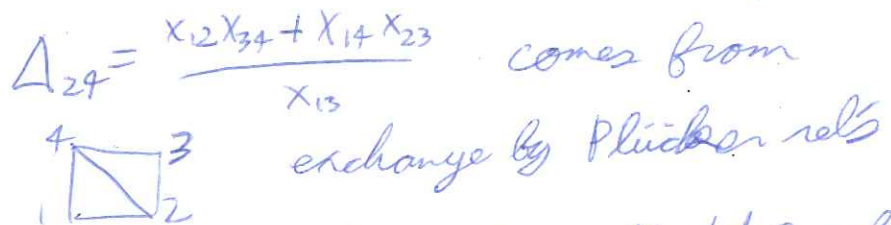 Δ₂₄ = (x₁₂x₃₄ + x₁₄x₂₃) / x₁₃ comes from
4 3 exchange by Plücker rel's
1 2